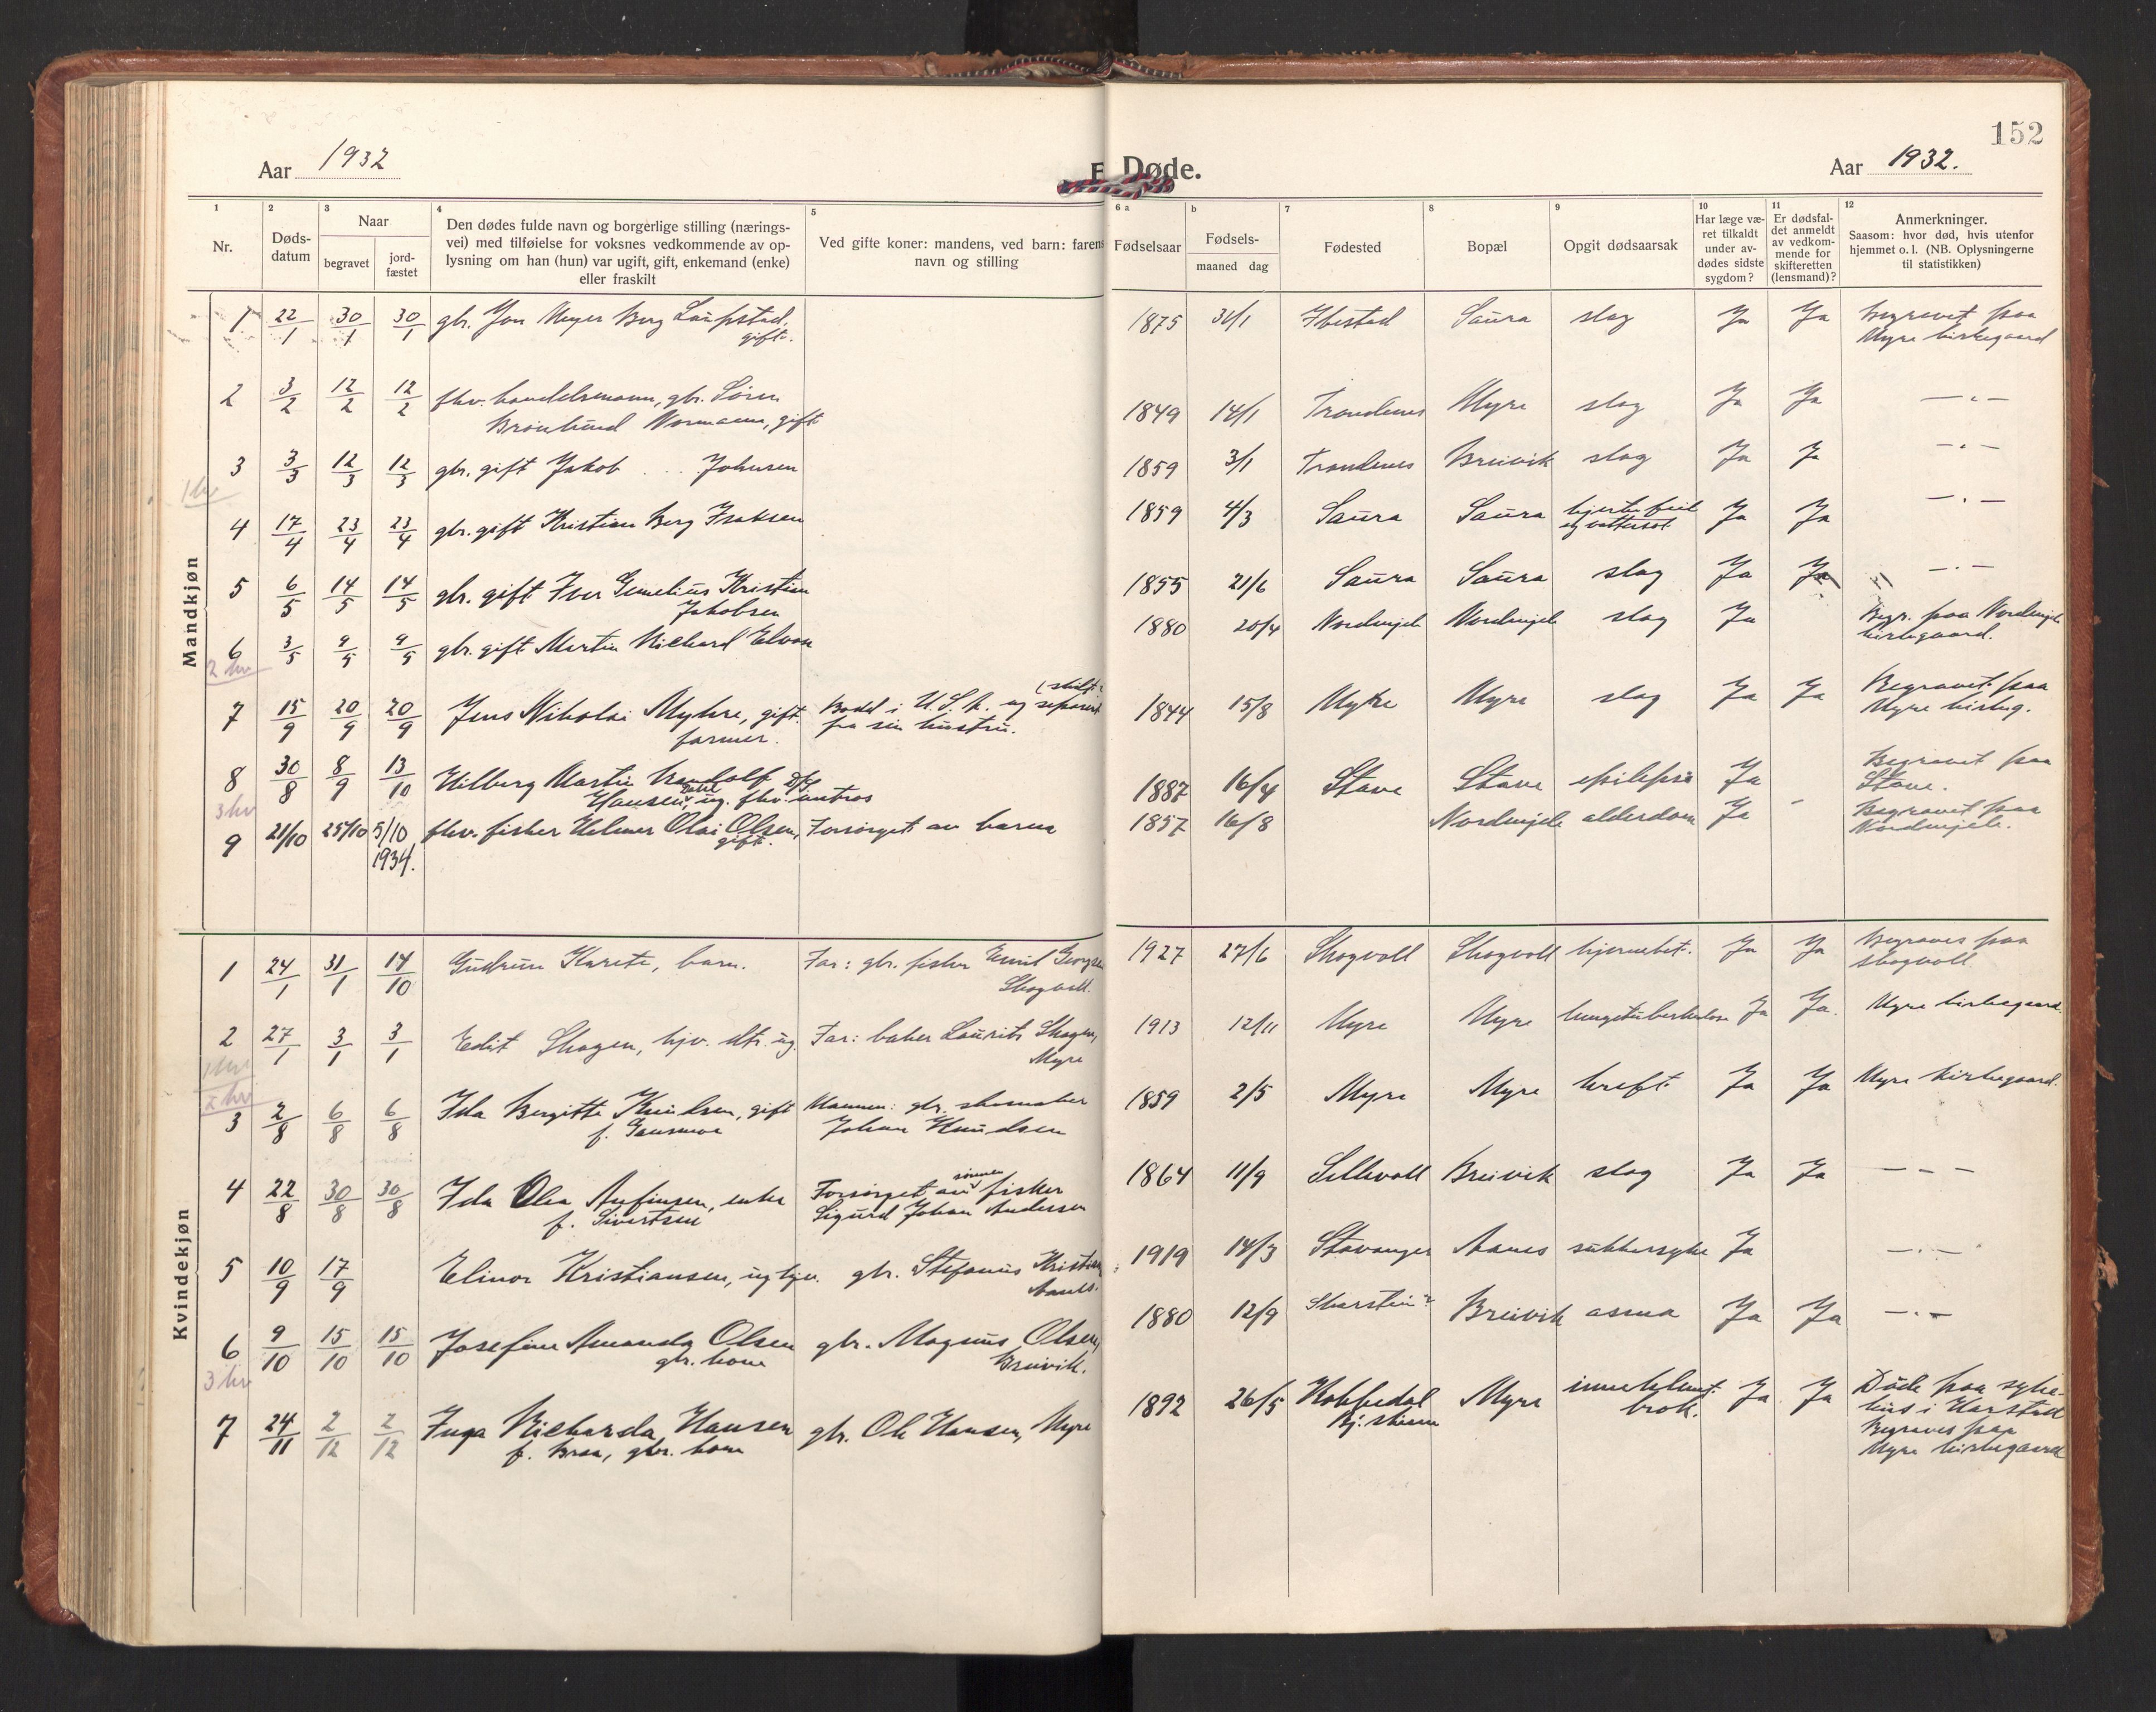 152
Aar 1932
Døde.
Aar 1932.
1 2 3 4 5 6 a b 7 8 9 10 11 12
Nr.
Døds-
datum
Naar
begravet
jord-
fæstet
Den dødes fulde navn og borgerlige stilling (nærings-
vei) med tilføielse for voksnes vedkommende av op-
lysning om han (hun) var ugift, gift, enkemand (enke)
eller fraskilt
Ved gifte koner: mandens, ved barn: farens
navn og stilling
Fødselsaar
Fødsels-
maaned dag
Fødested
Bopæl
Opgit dødsaarsak
Har læge væ-
ret tilkaldt
under av-
dødes sidste
sygdom?
Er dødsfal-
det anmeldt
av vedkom-
mende for
skifteretten
(lensmand)?
Anmerkninger.
Saasom: hvor død, hvis utenfor
hjemmet o. l. (NB. Oplysningerne
til statistikken)
Mandkjøn
1 22/1 30/1 30/1 gbr. Jon Meyer Berg Laupstad, 1875 31/1 Ibestad Saura slag Ja Ja Begravet paa
gift. Myre kirkegaard
2 3/2 12/2 12/2 fhv. handelsmann, gbr. Sören 1849 14/1 Trondenes Myre slag Ja Ja — " —
Brönlund Normann, gift
3 3/3 12/3 12/3 gbr. gift Jakob . . . Johnsen 1859 3/1 Trondenes Breivik slag Ja Ja — " —
1 kv
4 17/4 23/4 23/4 gbr. gift Kristian Berg Isaksen 1859 4/3 Saura Saura hjertefeil Ja Ja — . —
og vattersot
5 6/5 14/5 14/5 gbr. gift Iver Kristian 1855 21/6 Saura Saura slag Ja Ja — . —
Jakobsen
6 3/5 9/5 9/5 gbr. gift Martin Richard 1880 20/4 Nordmjele Nordmjele slag Ja Begr. paa Nordmjele
kirkegaard.
2 kv
7 15/9 20/9 20/9 Jens Nikolai Myhre, gift. Bodd i U.S.A. og separert 1844 15/8 Myre Myre slag Ja Ja Begravet paa
farmer. fra sin hustru. Myre kirkeg.
8 30/8 8/9 13/10 Hilberg Martin 1887 16/4 Stave Stave epilepsi Ja Begravet paa
Hansen, ug. fhv. Stave.
3 kv
9 21/10 25/10 5/10 fhv. fisker Helmer Olai Olsen, Forsörget av barna 1857 16/8 Nordmjele alderdom Ja - Begravet paa
1934. gift. Nordmjele.
Kvindekjøn
1 24/1 31/1 14/10 Gudrun Karete, barn. Far: gbr. fisker Emil Georgsen 1927 27/6 Skogvoll Skogvoll hjernebet. Ja Ja Begraves paa
Skogvoll. Skogvoll
2 27/1 3/1 3/1 Edit Skogen, hjv. dtr. ug. Far: baker Laurits Skogen, 1913 12/11 Myre Myre lungetuberkulose Ja Ja. Myre kirkegaard.
Myre
1 kv
2 kv
3 2/8 6/8 6/8 Ida Bergitte Knudsen, gift Mannen: gbr. skomaker 1859 2/5 Myre Myre kreft Ja Ja Myre kirkegaard.
Johan Knudsen
4 22/8 30/8 30/8 Ida Olea Anfinsen, enke Forsörget av sönnen fisker 1864 11/9 Sellevoll Breivik slag Ja Ja — – —
f. Sivertsen Sigurd Johan Andersen
5 10/9 17/9 Elinor Kristiansen, gbr. Stefanus Kristian 1919 14/3 Stavanger Aanes sukkersyke Ja — . —
Aanes.
6 9/10 15/10 15/10 Josefine Amanda Olsen gbr. Magnus Olsen, 1880 12/9 Skarstein Breivik asma Ja Ja — . —
gbr. kone Breivik.
3 kv
7 24/11 2/12 2/12 Inga Richarda Hansen gbr. Ole Hansen, Myre 1892 26/5 Kobbedal Myre inneklemt Ja Ja Döde paa syke-
f. Braa, gbr. kone Bj. skinn brok. hus i Harstad
Begraves paa
Myre kirkegaard